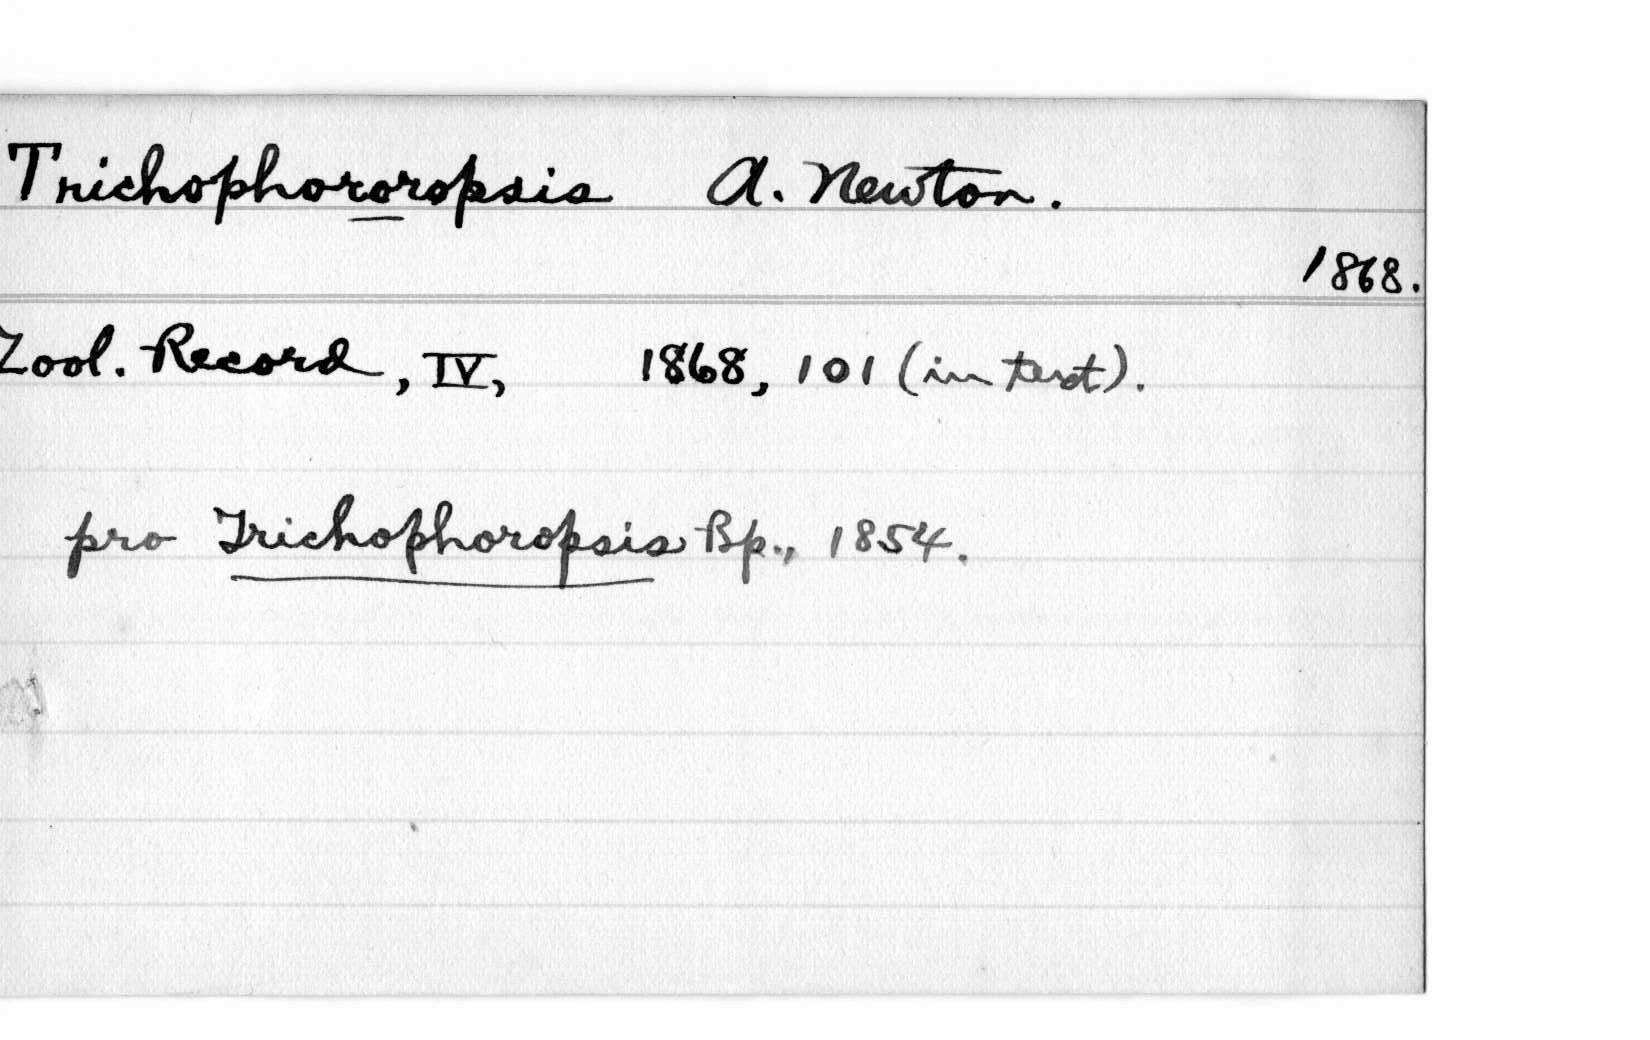 Trichophororopsis A. Newton.
1868.
Zool. Record, IV, 1868, 101 (in text).
pro Trichophoropsis Bp., 1854.